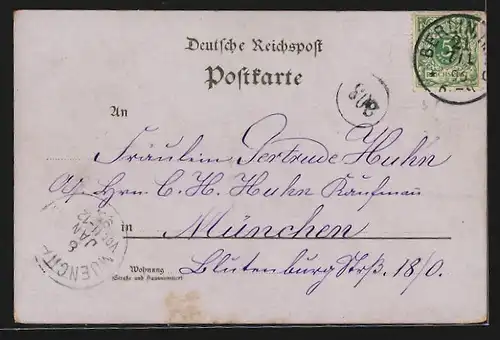 Deutsche Reichspost
Postkarte
BERLIN
An
Fräulein Gertrude Huhn
Hrn. C. H. Huhn Kaufmann
in München
Wohnung
(Straße und Hausnummer)
Blutenburg Strß. 18/0.
MUENCH
8
JAN